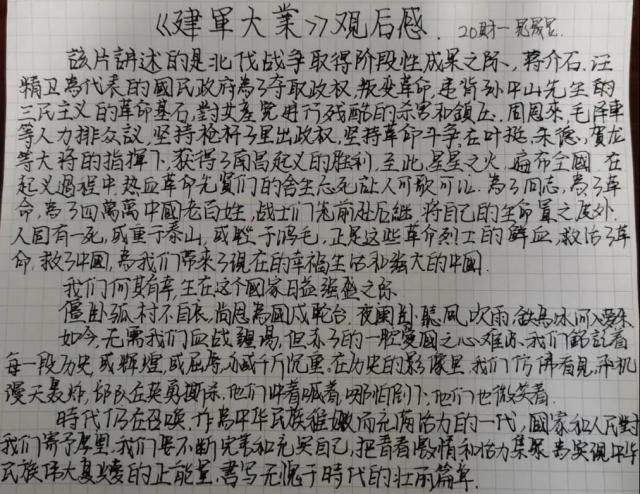 《建軍大業》观后感. 20財一
該片講述的是北伐战争取得阶段性成果之际, 蒋介石. 汪
精卫為代表的國民政府為了夺取政权, 叛变革命, 違背孙中山先生的
三民主义的革命基石, 對共產党进行残酷的杀害和鎮压. 周恩來, 毛泽東
等人力排众议, 坚持枪杆子里出政权, 坚持革命斗争, 在叶挺, 朱德, 賀龙
等大将的指揮下, 获得了南昌起义的胜利, 至此, 星星之火, 遍布全國. 在
起义過程中, 热血革命先賢们的舍生忘死让人可歌可泣. 為了同志, 為了革
命, 為了四萬萬中國老百姓, 战士们先前赴后継, 将自己的生命置之度外.
人固有一死, 或重于泰山, 或輕于鸿毛, 正是这些革命烈士的鲜血, 救活了革
命, 救了中國, 為我们帶來了現在的幸福生活和強大的中國.
我们何其有幸, 生在这个國家日益強盛之际.
僵卧孤村不自哀, 尚思為國戍輪台. 夜闌卧聽風吹雨, 鉄馬冰河入夢來.
如今, 无需我们血战疆場, 但赤子的一腔愛國之心难凉. 我们銘記着
每一段历史, 或辉煌, 或屈辱, 亦或千斤沉重. 在历史的影像里, 我们仿佛看見, 飛机
漫天轰炸, 部队在英勇厮杀, 他们冲着喊着, 哪怕倒下, 他们也微笑着.
時代仍在召唤, 作為中华民族稚嫩而充满活力的一代, 國家和人民對
我们寄予厚望. 我们要不断完善和充实自己, 把青春激情和活力集聚為实現中华
民族伟大复兴的正能量, 書写无愧于時代的壮丽篇章.